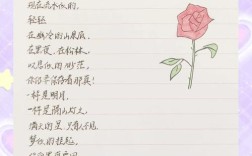 现在流水似的,
轻轻
在幽冷的山泉底,
在黑夜,在松林,
叹息似的渺茫,
你仍要保存着那真!
一样是明月,
一样是隔山灯火,
满天的星,只有人不见,
梦似的挂起,